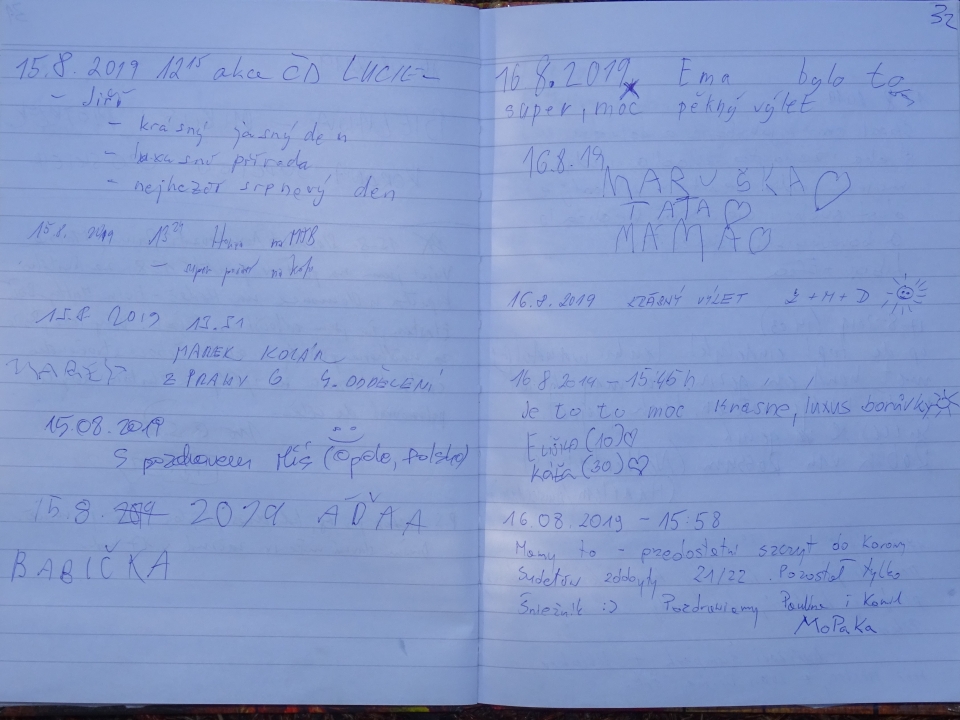 15.8. 2019 12¹⁵ akce ČD LUCIE
- Jiří
- krásný jasný den
- luxusní příroda
- nejhezčí srpnový den
15.8. 2019 13 na MTB
- super na kole
15.8 2019 13.51
MAREK KOLÁŘ
Z PRAHY 6 4. ODDĚLENÍ
15.08.2019
S pozdravem Miś (Opole, Polsko)
15.8. 2019 2019 AĎAA
BABIČKA
32
16.8.2019 Ema bylo to
super, moc pěkný výlet
16.8.19
MARUŠKA
TAŤA
MÁMA
16.8.2019 KRÁSNÝ VÝLET Z+M+D
16 8 2019 - 15:45h
Je to to moc krasne, luxus borůvky
Eliška (10)
Káťa (30)
16.08.2019 - 15:58
Mamy to - przedostatni szczyt do Korony
Sudetów zdobyty 21/22. Pozostał tylko
Śnieżnik :) Pozdrawiamy Paulina i Kamil
MoPaKa